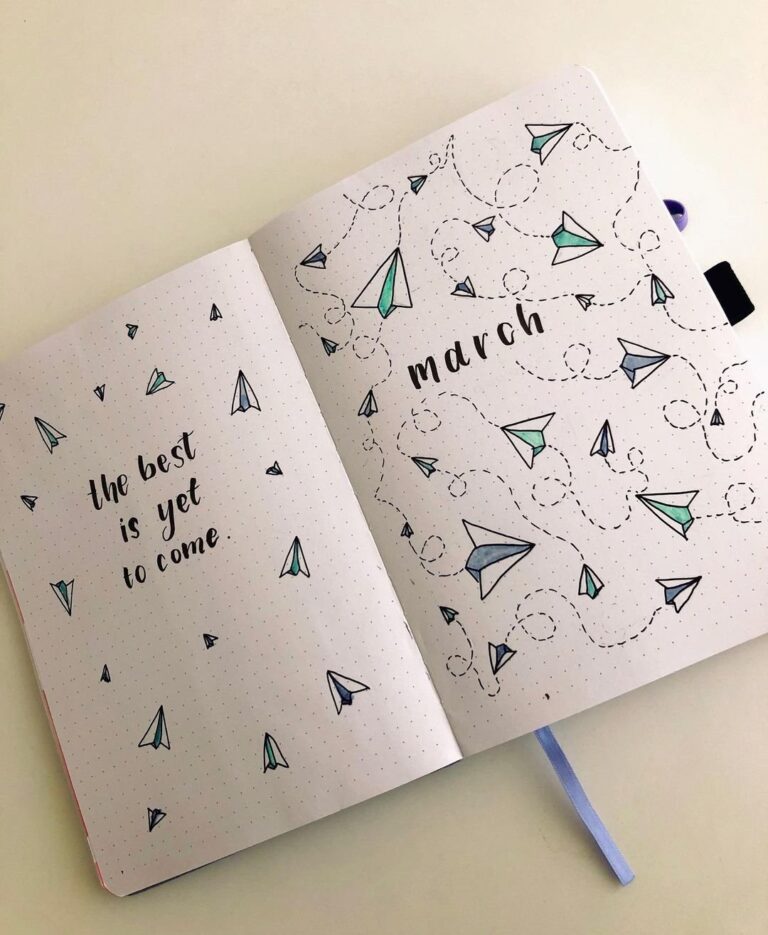 the best
is yet
to come.
march